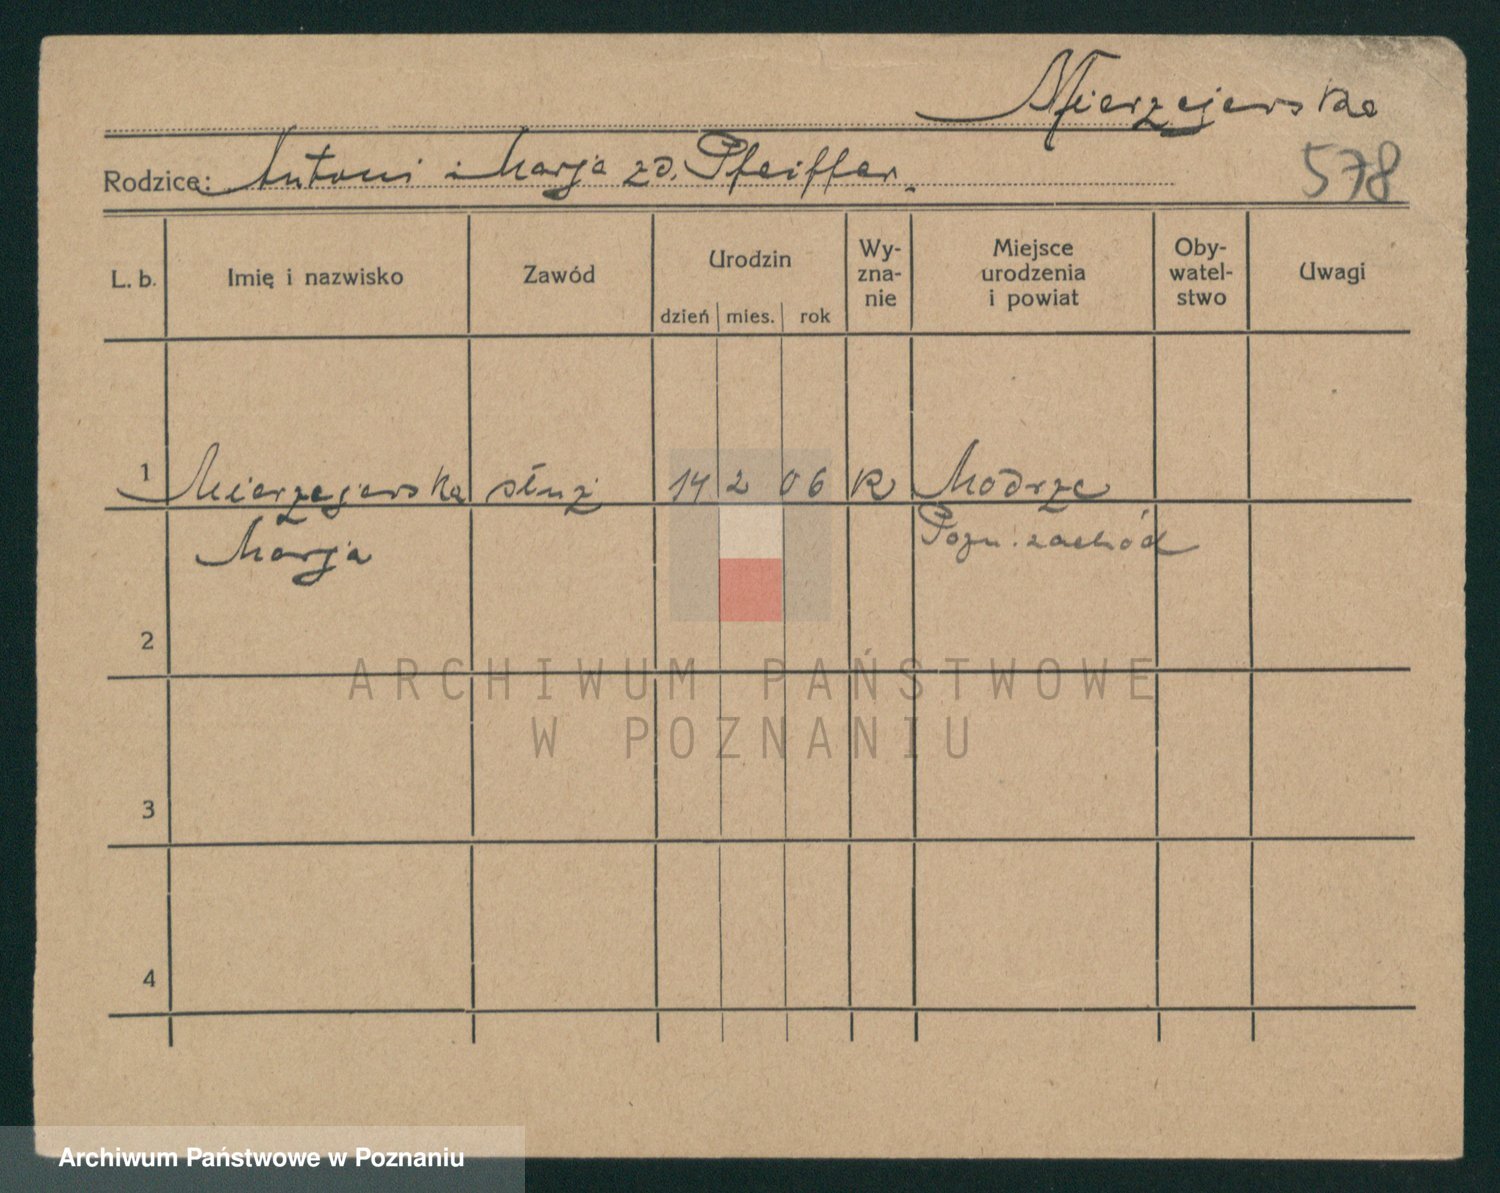 Mierzejewska
Rodzice: Antoni i Marja zd. Pfeiffer.
578
L. b. Imię i nazwisko Zawód Urodzin dzień mies. rok Wy-zna-nie Miejsce urodzenia i powiat Oby-watel-stwo Uwagi
1 Mierzejewska służ 14 2 06 R Modrze
Marja Pozn. zachód
2
3
4
ARCHIWUM PAŃSTWOWE
W POZNANIU
Archiwum Państwowe w Poznaniu